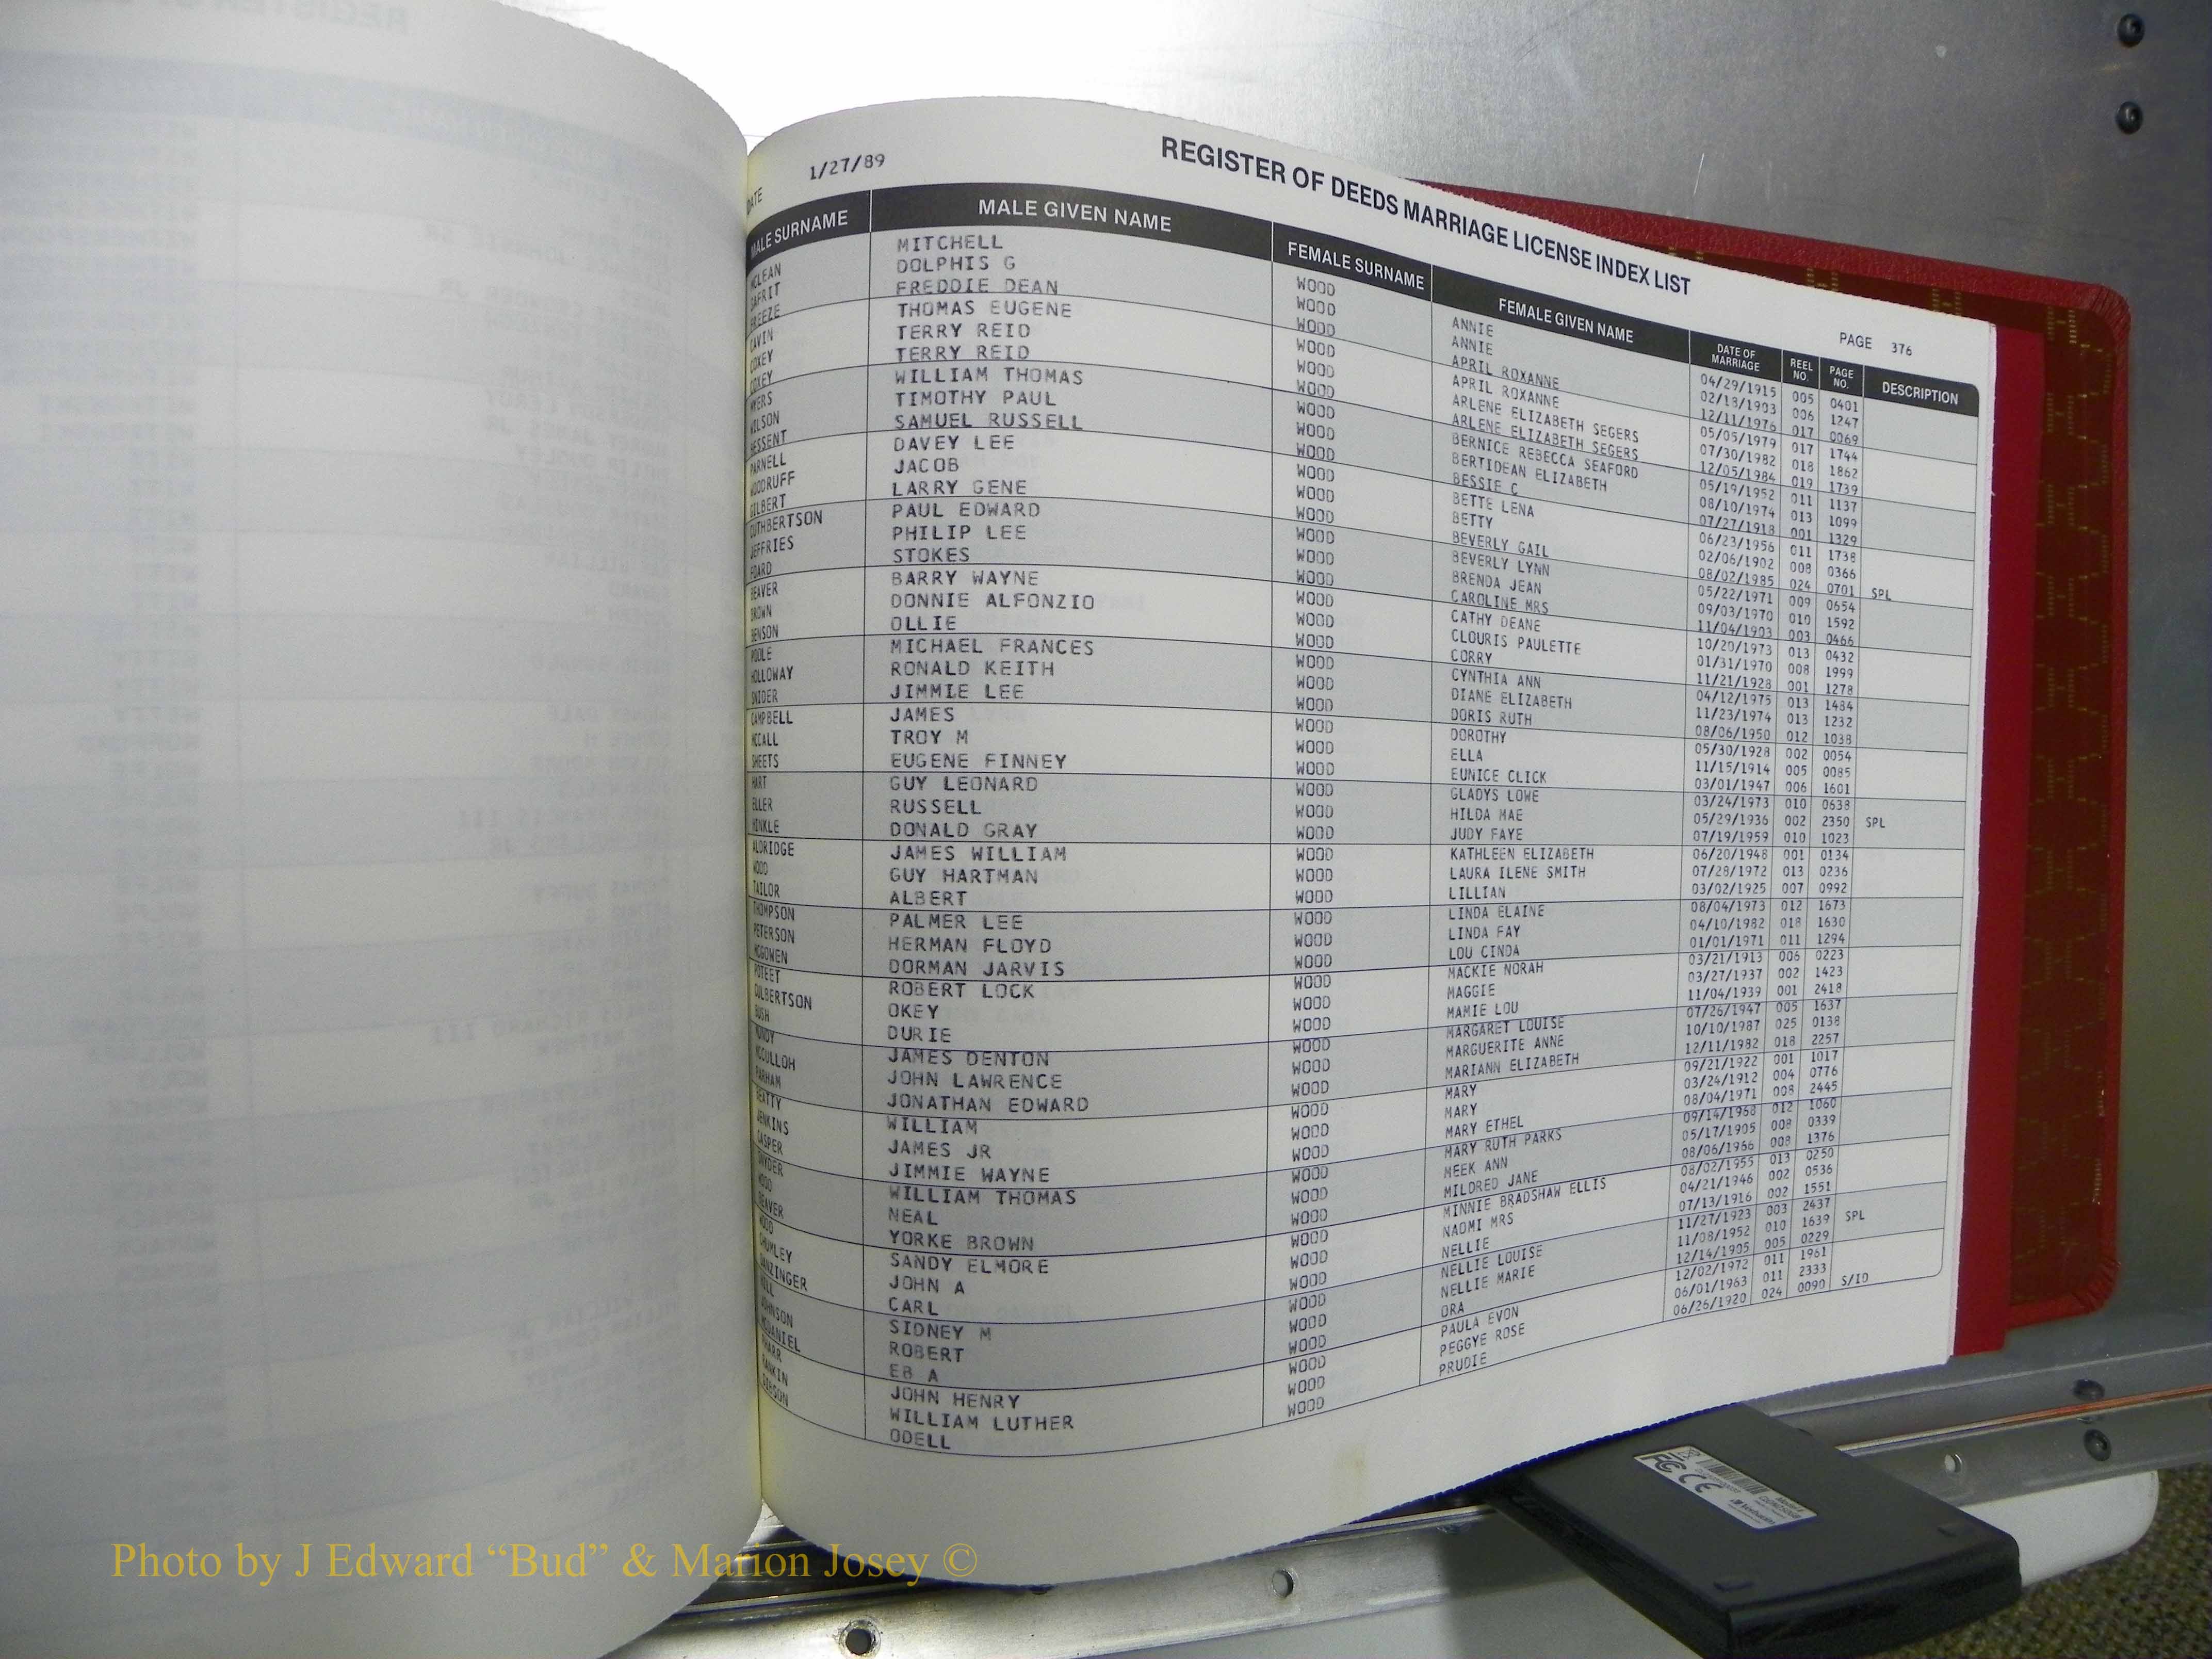 DATE 1/27/89
REGISTER OF DEEDS MARRIAGE LICENSE INDEX LIST
PAGE 376
MALE SURNAME MALE GIVEN NAME FEMALE SURNAME FEMALE GIVEN NAME DATE OF MARRIAGE REEL NO. PAGE NO. DESCRIPTION
MCLEAN MITCHELL WOOD ANNIE 04/29/1915 005 0401
SAFRIT DOLPHIS G WOOD ANNIE 02/18/1903 006 1247
FREEZE FREDDIE DEAN WOOD APRIL ROXANNE 12/11/1976 017 0069
CAVIN THOMAS EUGENE WOOD APRIL ROXANNE 05/05/1979 017 1744
COXEY TERRY REID WOOD ARLENE ELIZABETH SEGERS 07/30/1982 018 1862
COXEY TERRY REID WOOD ARLENE ELIZABETH SEGERS 12/05/1984 019 1739
MYERS WILLIAM THOMAS WOOD BERNICE REBECCA SEAFORD 05/19/1952 011 1137
WILSON TIMOTHY PAUL WOOD BERTIDEAN ELIZABETH 08/10/1974 013 1099
BESSENT SAMUEL RUSSELL WOOD BESSIE C 07/27/1918 001 1329
PARNELL DAVEY LEE WOOD BETTE LENA 06/23/1956 011 1738
WOODRUFF JACOB WOOD BETTY 02/06/1902 008 0366
GILBERT LARRY GENE WOOD BEVERLY GAIL 08/02/1985 024 0701 SPL
CUTHBERTSON PAUL EDWARD WOOD BEVERLY LYNN 05/22/1971 009 0654
JEFFRIES PHILIP LEE WOOD BRENDA JEAN 09/03/1970 010 1592
FOARD STOKES WOOD CAROLINE MRS 11/04/1903 003 0466
BEAVER BARRY WAYNE WOOD CATHY DEANE 10/20/1973 013 0432
BROWN DONNIE ALFONZIO WOOD CLOURIS PAULETTE 01/31/1970 008 1999
BENSON OLLIE WOOD CORRY 11/21/1928 001 1278
POOLE MICHAEL FRANCES WOOD CYNTHIA ANN 04/12/1975 013 1484
HOLLOWAY RONALD KEITH WOOD DIANE ELIZABETH 11/23/1974 013 1232
SNIDER JIMMIE LEE WOOD DORIS RUTH 08/06/1950 012 1038
CAMPBELL JAMES WOOD DOROTHY 05/30/1928 002 0054
MCCALL TROY M WOOD ELLA 11/15/1914 005 0085
SHEETS EUGENE FINNEY WOOD EUNICE CLICK 03/01/1947 006 1601
HART GUY LEONARD WOOD GLADYS LOWE 03/24/1973 010 0638
ELLER RUSSELL WOOD HILDA MAE 05/29/1936 002 2350 SPL
HINKLE DONALD GRAY WOOD JUDY FAYE 07/19/1959 010 1023
ALDRIDGE JAMES WILLIAM WOOD KATHLEEN ELIZABETH 06/20/1948 001 0134
WOOD GUY HARTMAN WOOD LAURA ILENE SMITH 07/28/1972 013 0236
TAILOR ALBERT WOOD LILLIAN 03/02/1925 007 0992
THOMPSON PALMER LEE WOOD LINDA ELAINE 08/04/1973 012 1673
PETERSON HERMAN FLOYD WOOD LINDA FAY 04/10/1982 018 1630
MCGOWEN DORMAN JARVIS WOOD LOU CINDA 01/01/1971 011 1294
POTEET ROBERT LOCK WOOD MACKIE NORAH 03/21/1913 006 0223
CULBERTSON OKEY WOOD MAGGIE 03/27/1937 002 1423
BUSH DURIE WOOD MAMIE LOU 11/04/1939 001 2418
MUNDY JAMES DENTON WOOD MARGARET LOUISE 07/26/1947 005 1637
MCCULLOH JOHN LAWRENCE WOOD MARGUERITE ANNE 10/10/1987 025 0138
PARHAM JONATHAN EDWARD WOOD MARIANN ELIZABETH 12/11/1982 018 2257
BEATTY WILLIAM WOOD MARY 09/21/1922 001 1017
JENKINS JAMES JR WOOD MARY 03/24/1912 004 0776
CASPER JIMMIE WAYNE WOOD MARY ETHEL 08/04/1971 008 2445
SNYDER WILLIAM THOMAS WOOD MARY RUTH PARKS 09/14/1968 012 1060
WOOD NEAL WOOD MEEK ANN 05/17/1905 008 0339
BEAVER YORKE BROWN WOOD MILDRED JANE 08/06/1966 008 1376
WOOD SANDY ELMORE WOOD MINNIE BRADSHAW ELLIS 08/02/1955 013 0250
CHUMLEY JOHN A WOOD NAOMI MRS 04/21/1946 002 0536
DANZINGER CARL WOOD NELLIE 07/13/1916 002 1551
HILL SIDNEY M WOOD NELLIE LOUISE 11/27/1923 003 2437
JOHNSON ROBERT WOOD NELLIE MARIE 11/08/1952 010 1639 SPL
MCDANIEL EB A WOOD ORA 12/14/1905 005 0229
PHARR JOHN HENRY WOOD PAULA EVON 12/02/1972 011 1961
RANKIN WILLIAM LUTHER WOOD PEGGYE ROSE 06/01/1963 011 2333
GIBSON ODELL WOOD PRUDIE 06/26/1920 024 0090 S/ID
FC CE
Photo by J Edward “Bud” & Marion Josey ©